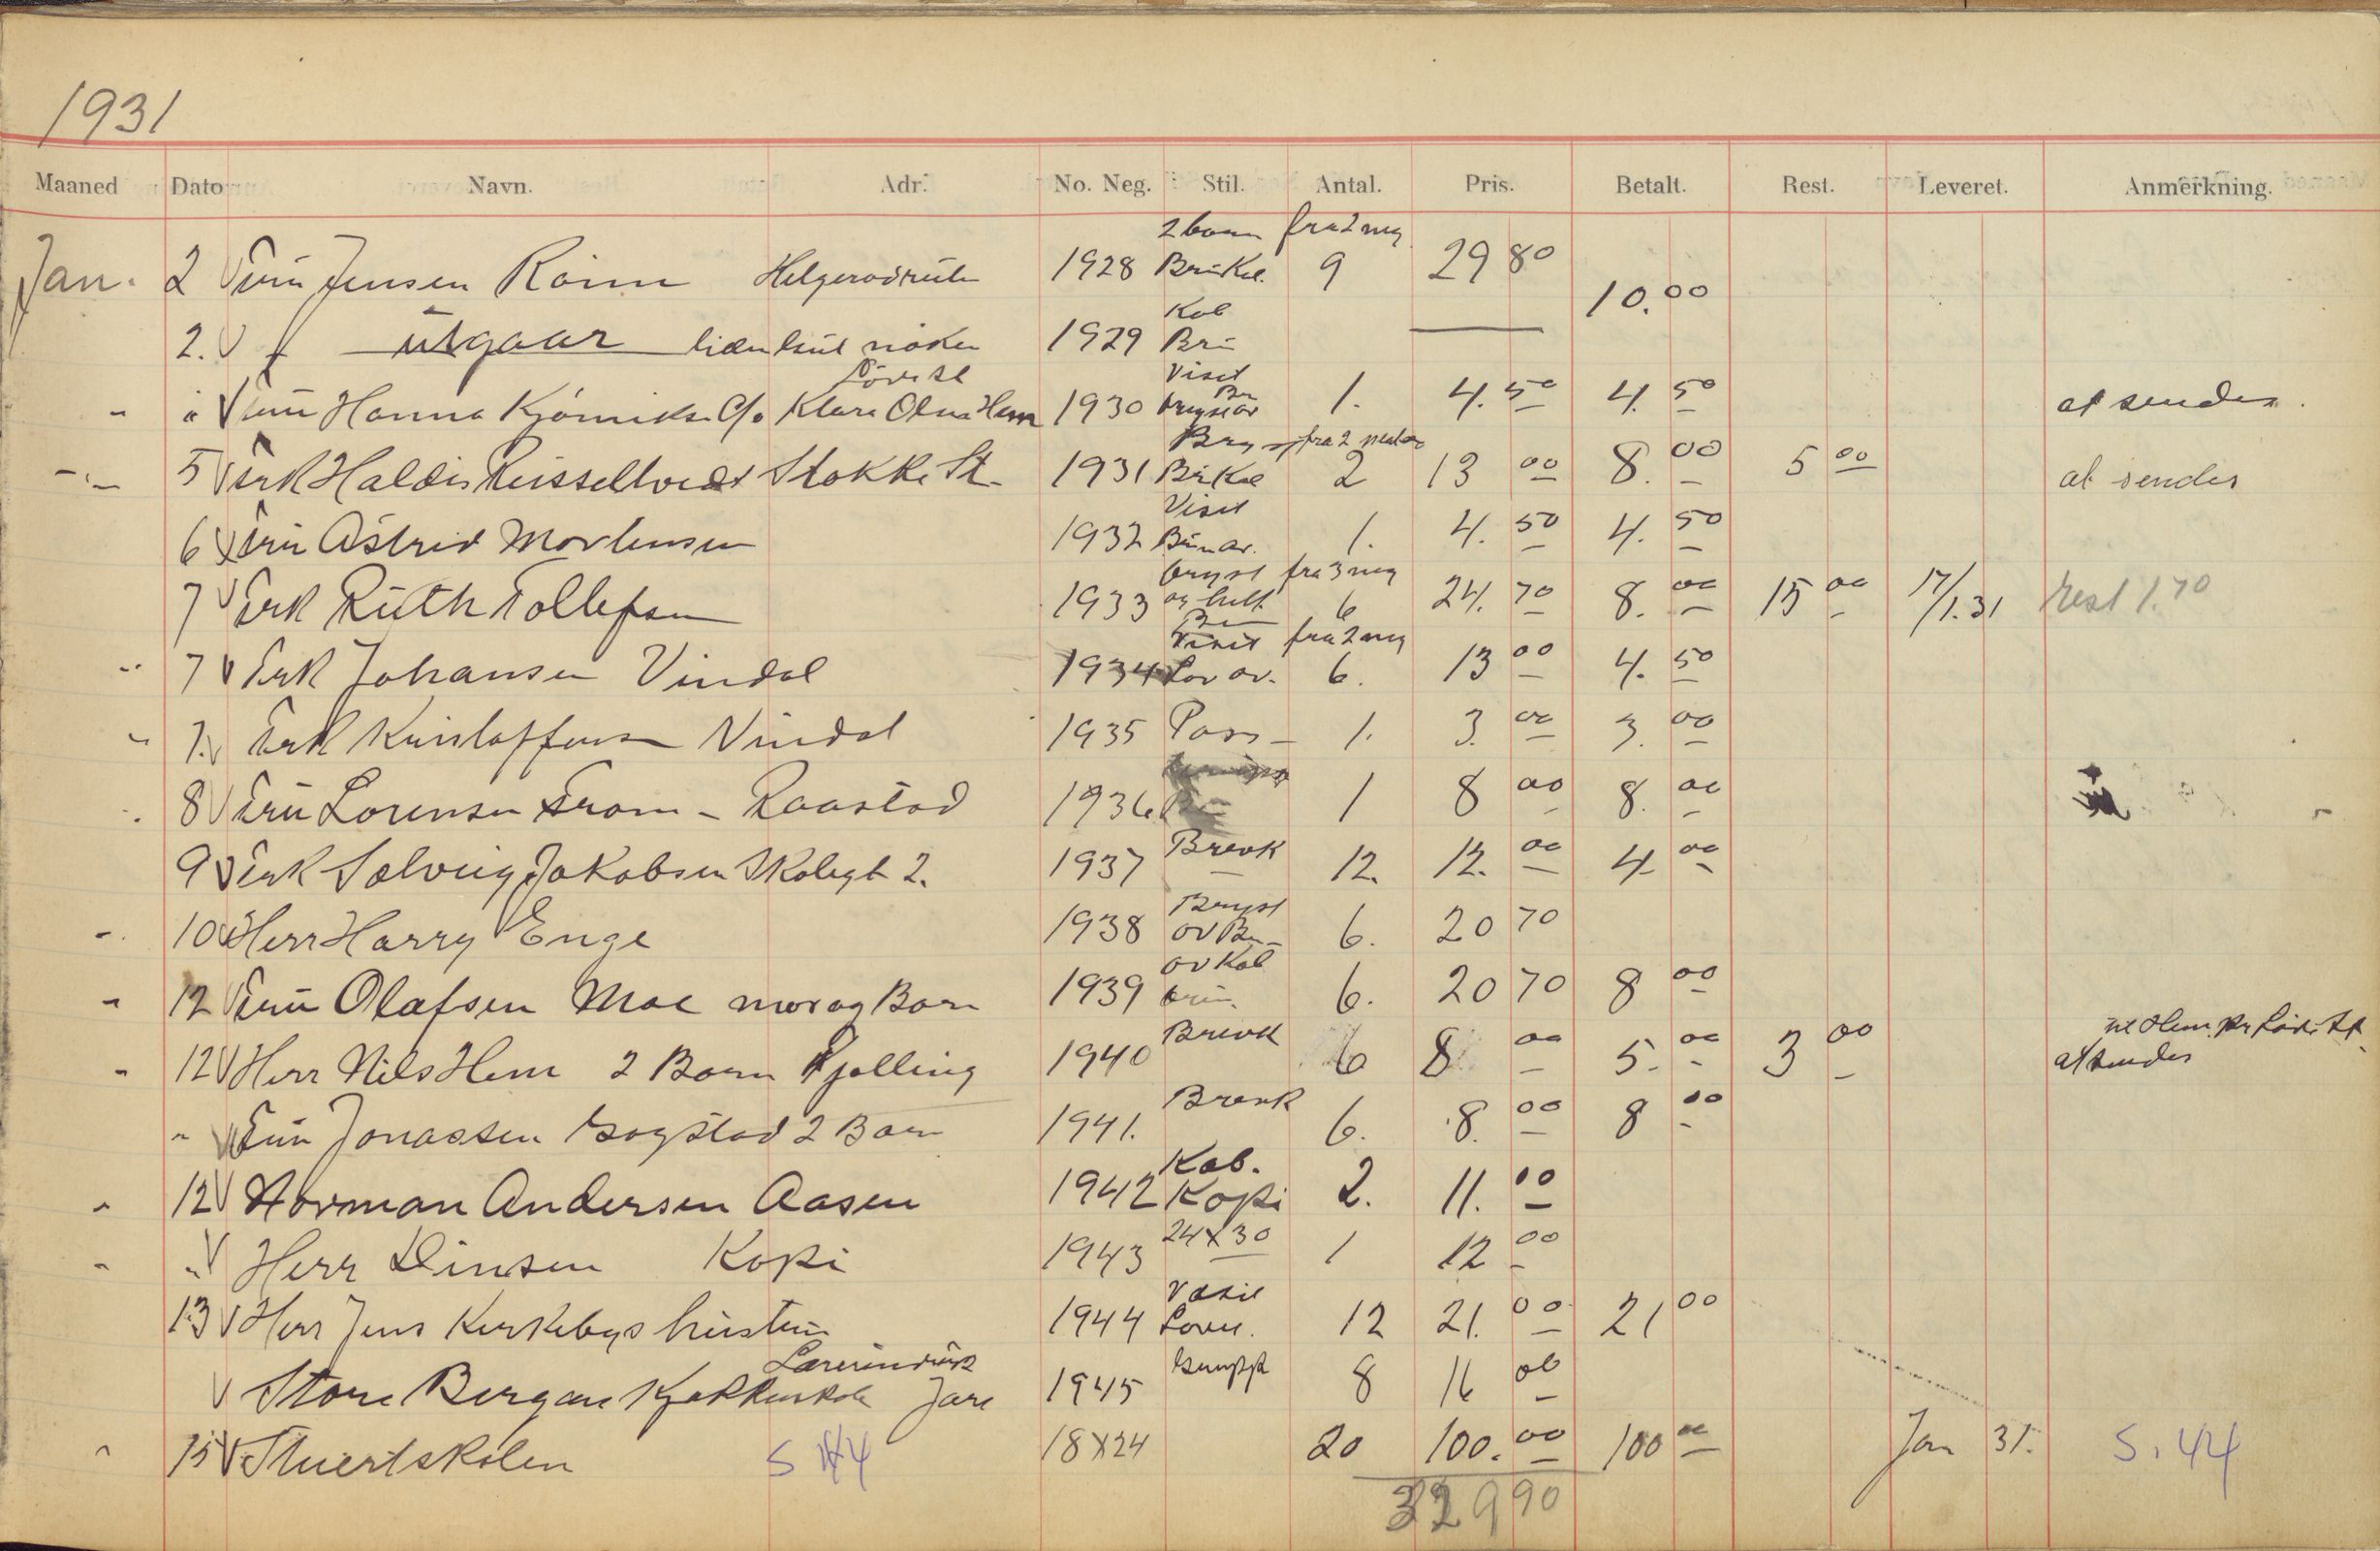 1931
Maaned Dato Navn. Adr. No. Neg. Stil. Antal. Pris. Betalt. Rest. Leveret. Anmerkning.
2 barn fra 2 neg
Jan. 2 Fru Jensen Raim 1928 9 29 80 10.00
Kab
2. utgaar 1929 Brun
Visit
" Fru Hanna c/o Klara Olsen Hem 1930 1. 4.50 4.50 at sendes.
Bryst fra 2
5 Frk Haldis Stokke St. 1931 2 13 00 8.00 5 00 at sendes
Visit
6 Fru Astrid Mortensen 1932 1. 4.50 4.50
bryst fra 3 neg
7 Frk Ruth Tollefsen 1933 og helf. 6 24.70 8.00 15 00 17/1.31 rest 1.70
Visit fra 2 neg
" 7 Frk Johansen Vindal 1934 ov. 6. 13 00 4.50
" 7. Frk Kristoffersen Vindal 1935 Pass 1. 3.00 3.00
8 Fru Lorensen Fram - Raastad 1936 1 8 00 8.00
Brevk
9 Frk Solveig Jakobsen Skolegt 2. 1937 12. 12.00 4 00
Bryst
10 Herr Harry Enge 1938 ov Brun 6. 20 70
ov Kab
12 Fru Olafsen Moe mor og Barn 1939 brun. 6. 20 70 8 00
Brevk
12 Herr Nils Hem 2 Barn Kjølling 1940 6 8 00 5.00 3 00 at sendes
Brevk
" Fru Jonassen Gogstad 2 Barn 1941. 6. 8.00 8 00
Kab.
12 Norman Andersen Aasen 1942 Kopi 2. 11.00
24x30
" Herr Dinsen Kopi 1943 1 12 00
Visit
13 Herr Jens Kirkebys hustru 1944 12 21.00 21 00
Lærerinde
Store Bergan Kjøkkenskole Jare 1945 Grupp 8 16 00
15 Stuertskolen S 44 18x24 20 100.00 100 00 Jan 31. S. 44
329 90